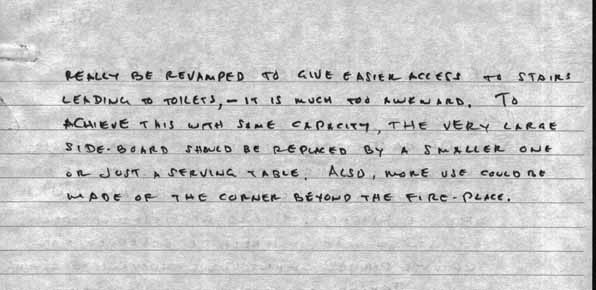 REALLY BE REVAMPED TO GIVE EASIER ACCESS TO STAIRS
LEADING TO TOILETS, – IT IS MUCH TOO AWKWARD. TO
ACHIEVE THIS WITH SAME CAPACITY, THE VERY LARGE
SIDE-BOARD SHOULD BE REPLACED BY A SMALLER ONE
OR JUST A SERVING TABLE. ALSO, MORE USE COULD BE
MADE OF THE CORNER BEYOND THE FIRE-PLACE.